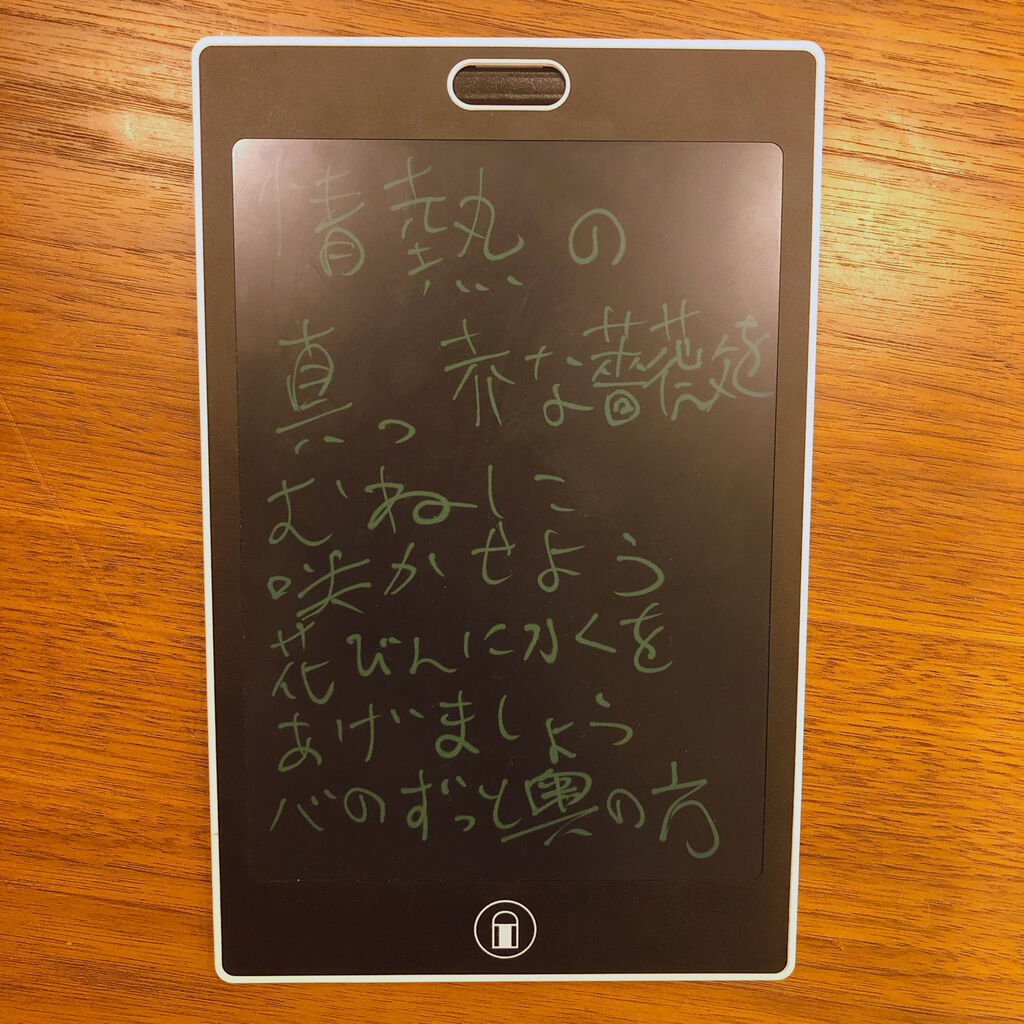 情熱の
真っ赤な薔薇を
むねに
咲かせよう
花びんに水くを
あげましょう
心のずっと奥の方